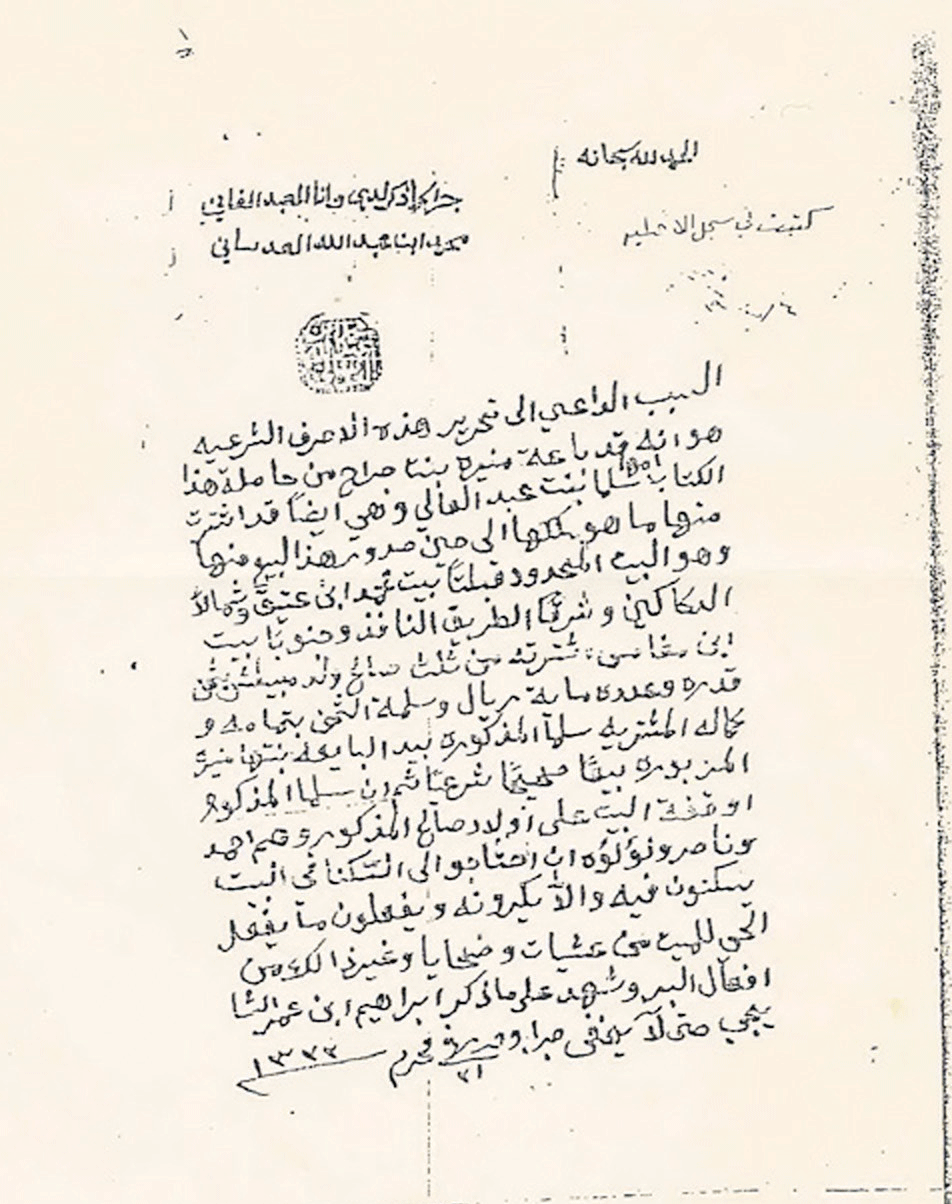 الحمد لله سبحانه
جرا ما ذكر لدي وانا العبد الفاني
محمد ابن عبد الله العدساني
كتبت في سجل
السبب الداعي الى تحرير هذه الاحرف الشرعيه
هو انه قد باعة منيره بنت صراح من حاملة هذا
الكتاب امها سلما بنت عبد العالي وهي ايضاً قد اشترت
منها ما هو ملكها الى حين صدور هذا البيع منها
وهو البيت المحدود قبلتاً بيت فهد ابن عتيق وشمالاً
الدكاكين وشرقاً الطريق النافذ وجنوباً بيت
ابن من ثلث صالح ولد
قدره وعدده ماية ريال وسلمة الثمن بتمامه و
كماله المشتريه سلما المذكوره بيد البايعه بنتها منيرة
المزبوره بيعاً صحيحاً شرعيّاً ثم ان سلما المذكوره
اوقفة البيت على أولاد صالح المذكور وهم احمد
وناصر ولؤلؤه ان احتاجو الى السّكنا في البيت
يسكنون فيه والاّ يكرونه ويفعلون ما يفعل
الحي للميت من عشيات وضحايا وغير ذالك من
افعال البر وشهد على ما ذكر ابراهيم ابن عمر الشا
يجي حتى لآ يخفى جرا وحرر في محرم ١٣٣٣
٢١